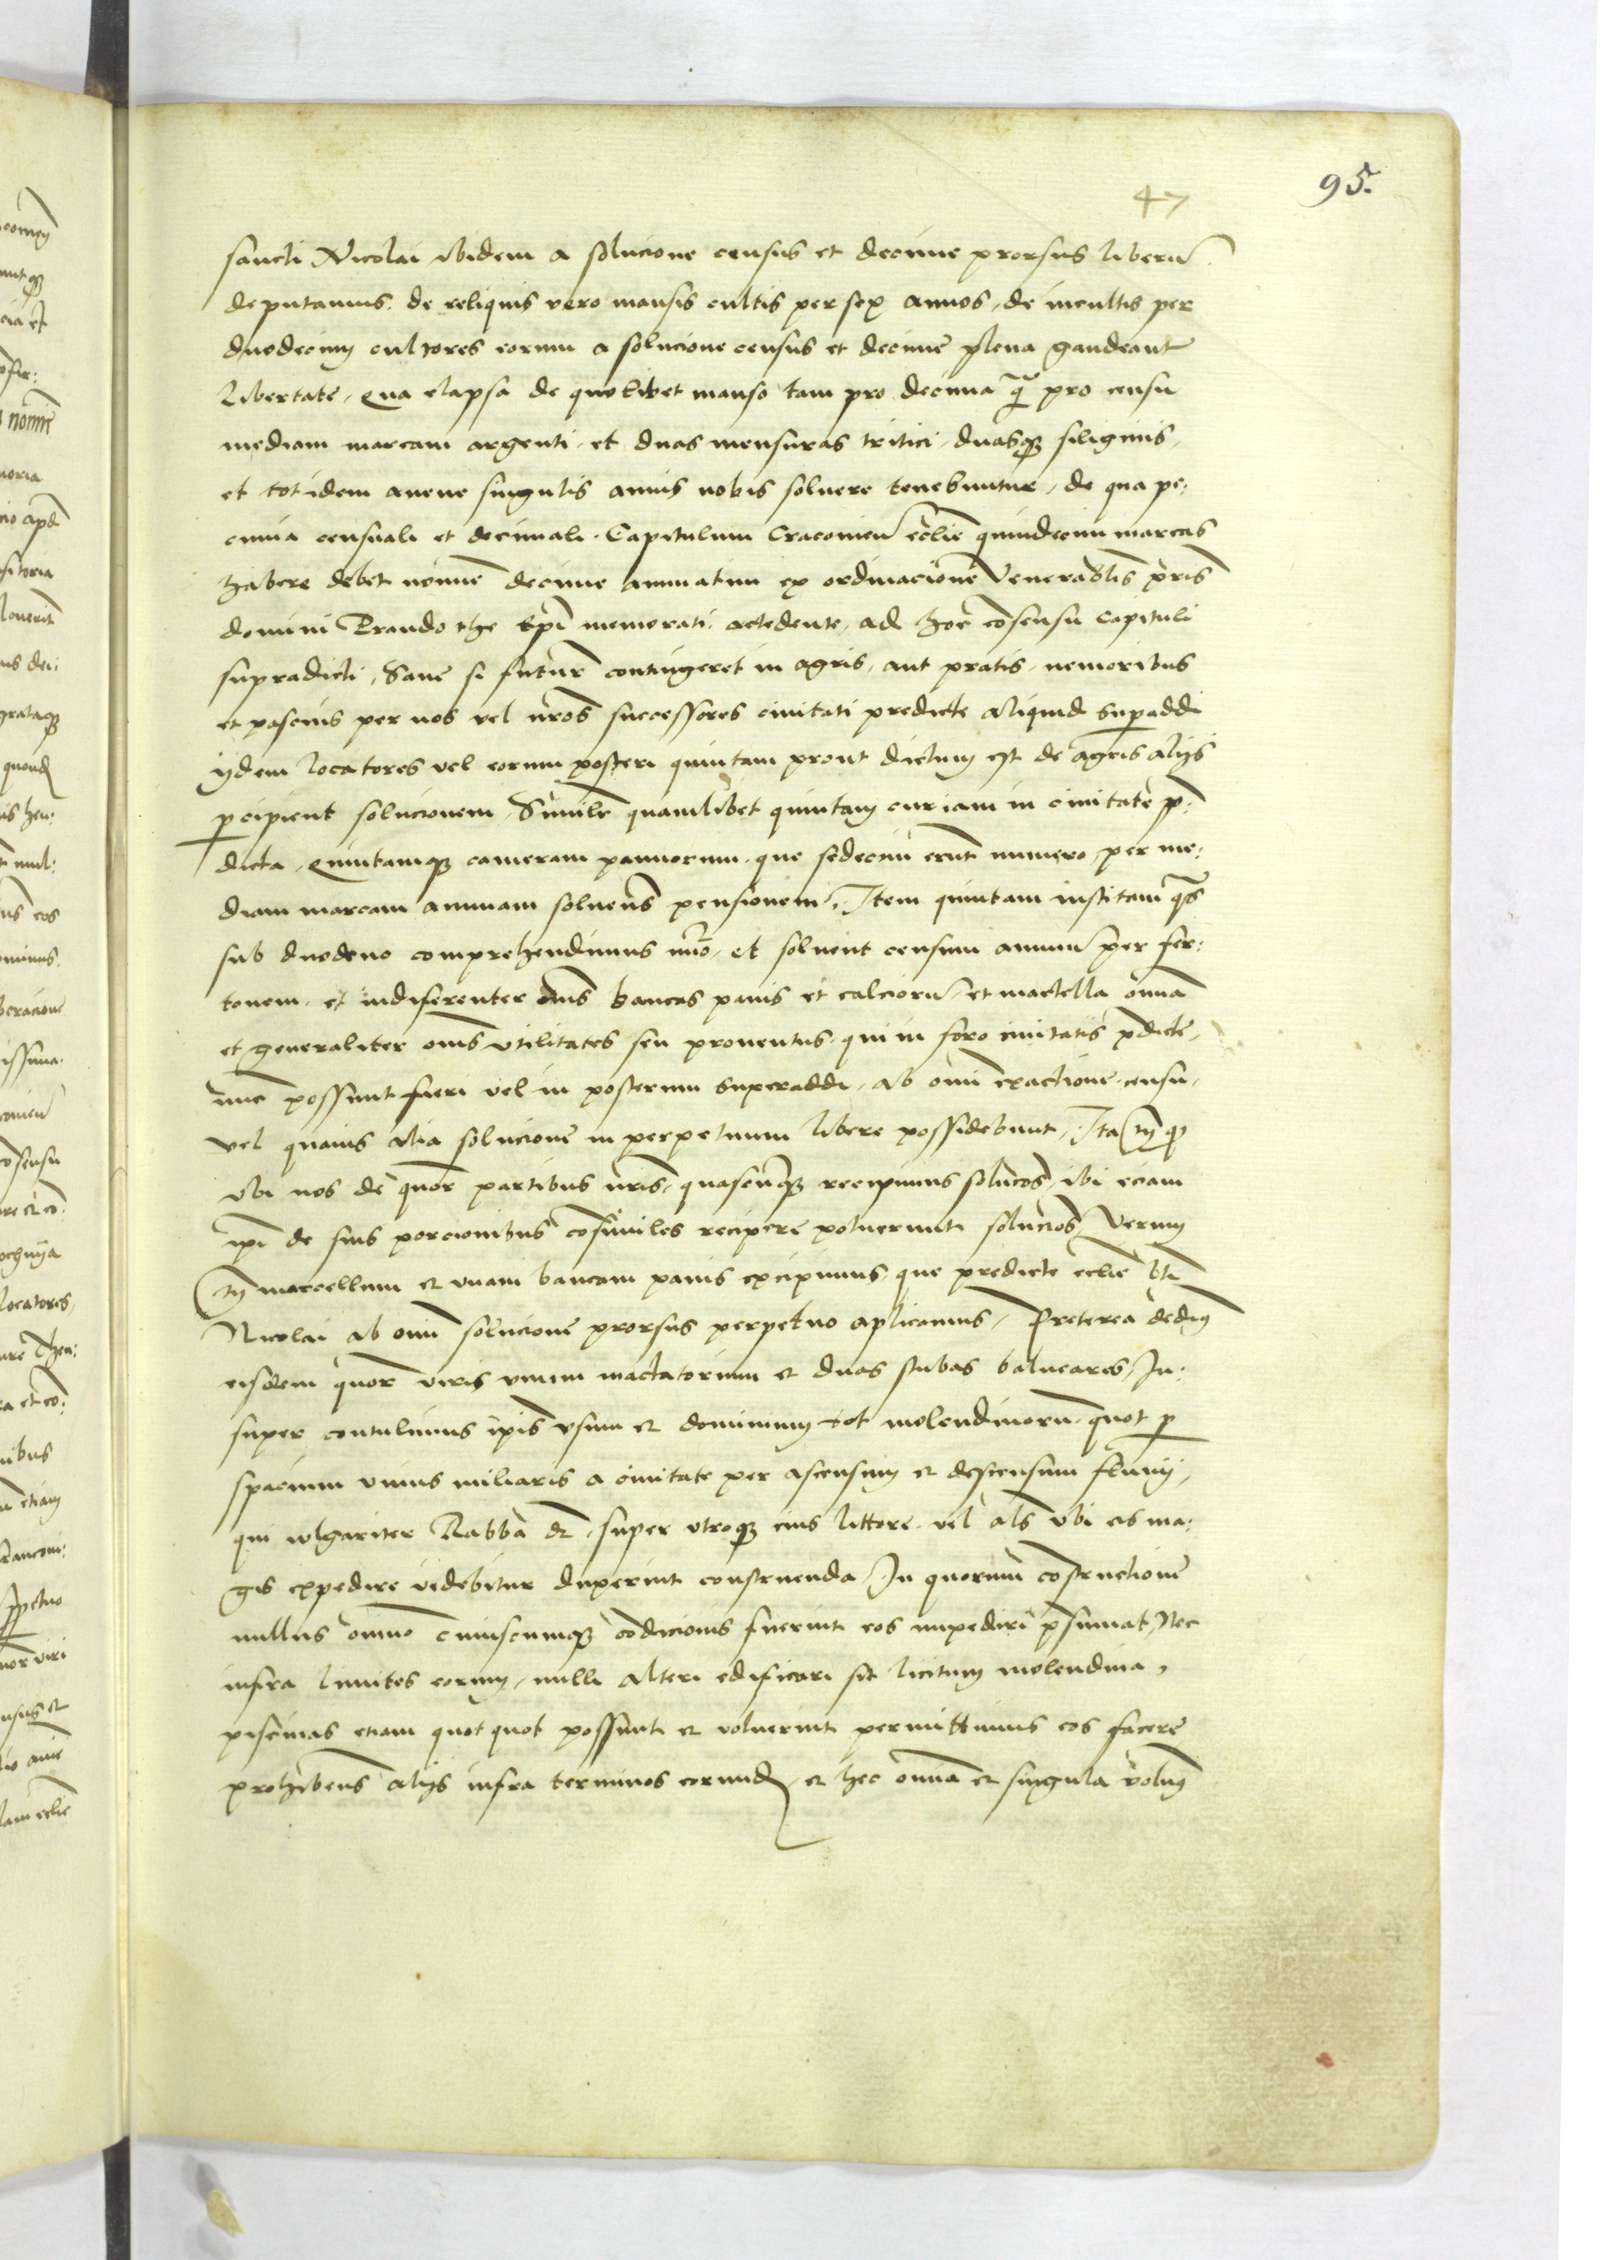 47
95.
sancti Nicolai ibidem a solucione census et decime prorsus liberu
deputamus. de reliquis vero mansis cultis per sex annos, de incultis per
duodecim cultores eorum a solucione census et decime plena gaudeant
libertate, qua elapsa de quolibet manso tam pro decima q̃ pro censu
mediam marcam argenti, et duas mensuras tritici, duasq3 siliginis,
et totidem avene singulis annis nobis solvere tenebuntur, de qua pe:
cunia censuali et decimali. Capitulum Cracovien̄ ecclie quindecim marcas
habere debet nomine decime annuatim ex ordinacione Venerabilis p̃ris
domini Prandothe Ep̃i memorati, accedente, ad hoc cōsensu Capituli
supradicti, Sane si futur̃ contingeret in agris, aut pratis, nemoribus
et pascuis per nos vel nr̃os successores civitati predicte aliquid superaddi
ijdem locatores vel eorum posteri quintam prout dictum est de agris alijs
p̱cipient solucionem, Similr̃ quamlibet quintam curiam in civitate p̃:
dicta, quintamq3 cameram pannorum, que sedecim erunt numero, per me:
diam marcam annuam solvens̄ pensionem, Item quintam institam q̃s
sub duodeno comprehendimus nūo, et solvent censum annuū per fer:
tonem, et indiferenter om̄s bancas panis et calciorū, et mactella om̄ia
et generaliter om̄s utilitates seu proventus, qui in foro civitatis p̃dicte,
nūc possunt fieri vel in posterum superaddi, ab om̄i exactione, censu,
vel quavis alia solucione in perpetuum libere possidebunt, Ita tn̄ q3
ubi nos de quor̃ partibus nr̃is, quascunq3 recipimus solucōs, ibi eciam
ip̃i de suis porcionibus cōsimiles recipere poluerunt soluciōs, Verum
tn̄ maccellum et unam bancam panis excipimus, que predicte ecclie bt̃i
Nicolai ab om̄i solucione prorsus perpetuo aplicamus, Preterea dedim̄
eisdem quor̃ viris unum mactatorium et duas stubas balneares, In:
super contulimus ip̃is usum et dominium tot molendinorū, quot p̱
spacium unius miliaris a civitate per ascensum et descensum fluvij,
qui vulgariter Rabba dr̃, super utroq3 eius littore, vel als̄ ubi eis ma:
gis expedire videbitur duxerint construenda, In quorum cōstructione
nullus om̄ino cuiuscumq3 cōdicionis fuerint eos impediri p̃sumat, Nec
infra limites eorum, nulli alteri edificari sit licitum molendina,
piscinas etiam quot quot possunt et voluerint permittimus eos facere
prohibens̄ alijs infra terminos eorundē, et hec om̄ia et singula volum̄